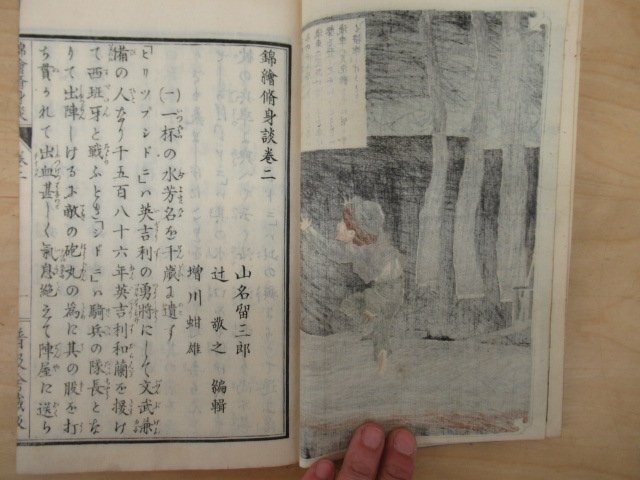 錦繪脩身談卷二
山名留三郎
辻 敬之 編輯
增川蚶雄
(一)一杯の水芳名を千歳に遺す
「ヒリツプシドニ」ハ英吉利の勇將にして文武兼
備の人なり千五百八十六年英吉利和蘭を援け
て西班牙と戰ふとき「シドニ」ハ騎兵の隊長とな
りて出陣しけるに敵の砲丸の爲に其の股を打
ち貫かれて出血甚しく氣息絶えて陣屋に送ら
錦繪脩身談
卷二
一
普及舍藏版